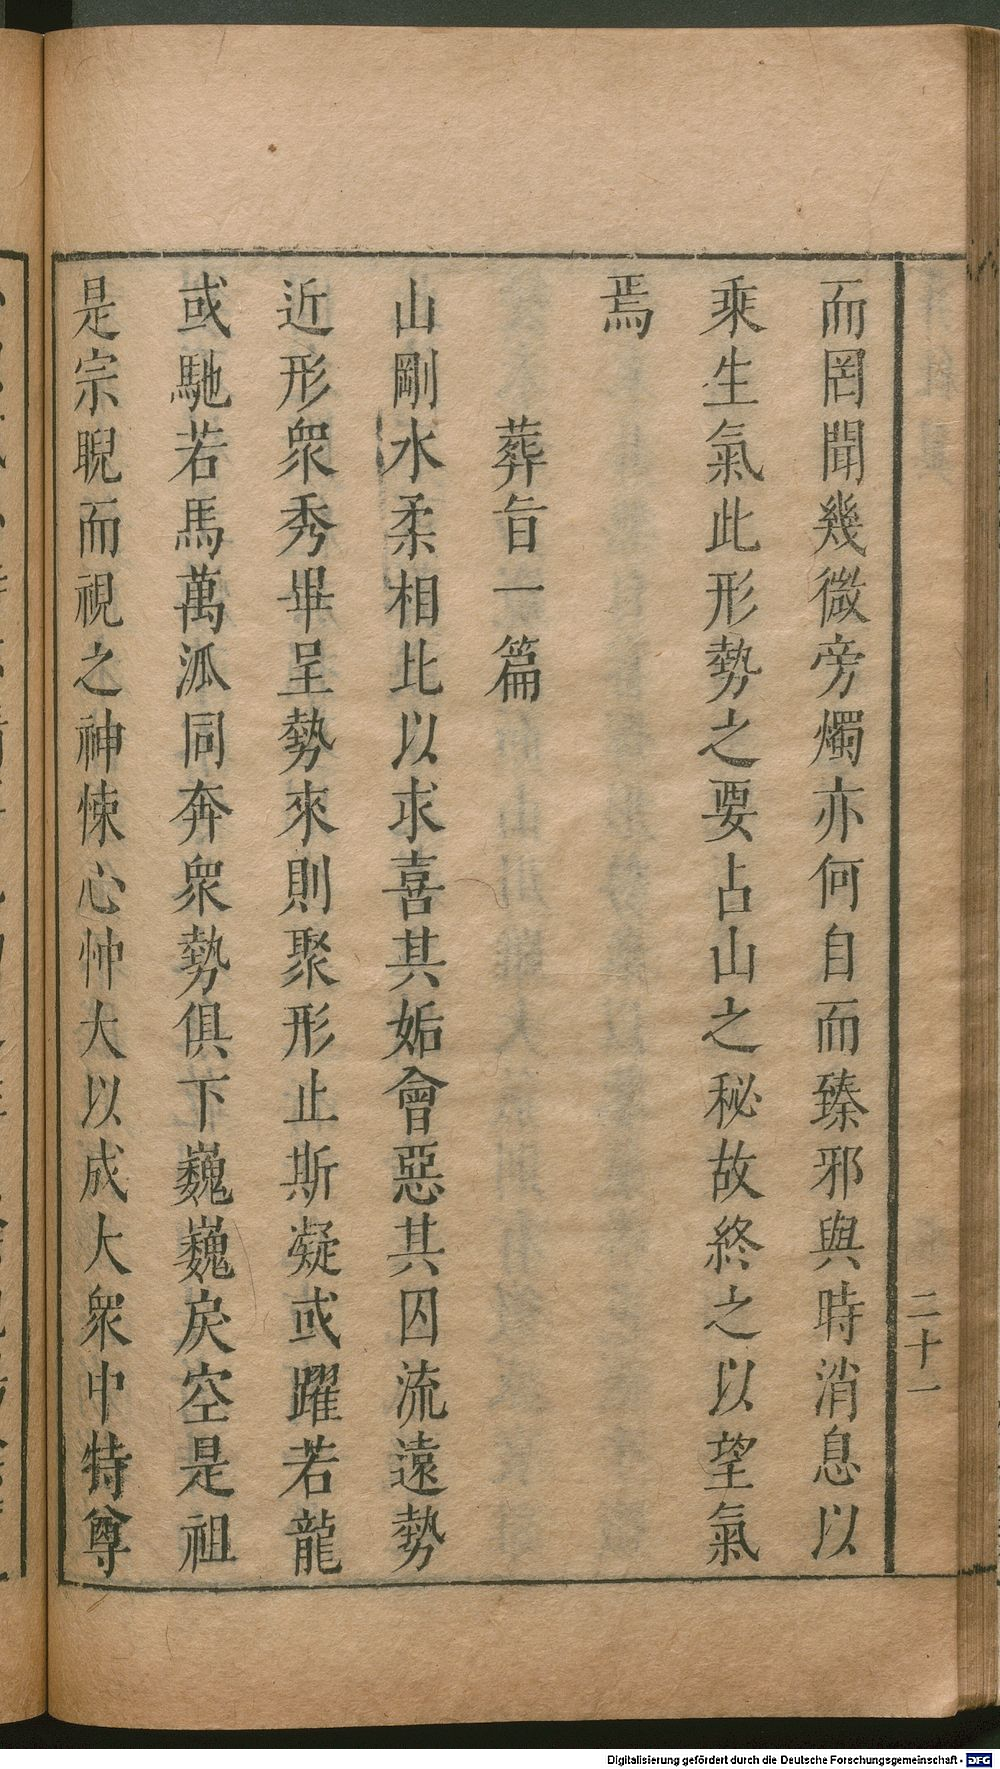 而罔聞幾微旁燭亦何自而臻邪與時消息以
乘生氣此形勢之要占山之秘故終之以望氣
焉
葬旨一篇
山剛水柔相比以求喜其姤會惡其囚流遠勢
近形衆秀畢呈勢來則聚形止斯凝或躍若龍
或馳若馬萬派同奔衆勢俱下巍巍戾空是祖
是宗睨而視之神悚心忡大以成大衆中特尊
二十一
Digitalisierung gefördert durch die Deutsche Forschungsgemeinschaft - DFG